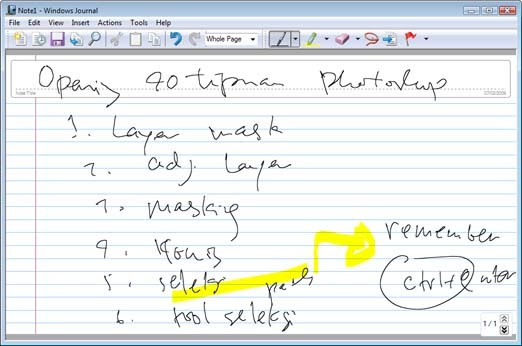 Note1 - Windows Journal
File Edit View Insert Actions Tools Help
Whole Page
Opening 40 photoshop
Note Title
1. Layer mask
2. adj. layer
3. masking
4.
5. seleksi path
remember
ctrl+
6. tool seleksi
1 / 1